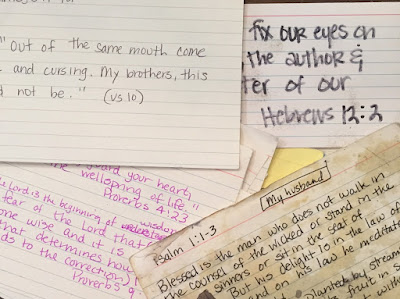 "Out of the same mouth come
and cursing. My brothers, this
not be." (vs. 10)
fix our eyes on
the author &
of our
Hebrews 12:2
your heart,
the wellspring of life"
Proverbs 4:23
the Lord is the beginning of wisdom
fear of the Lord that
one wise and it is
that determines how
to the correction)
Proverbs 9
My husband
Psalm 1:1-3
Blessed is the man who does not walk in
the counsel of the wicked or stand in the
sinners or sit in the seat of
But his delight is in the law of
on his law he meditates
planted by stream
fruit in